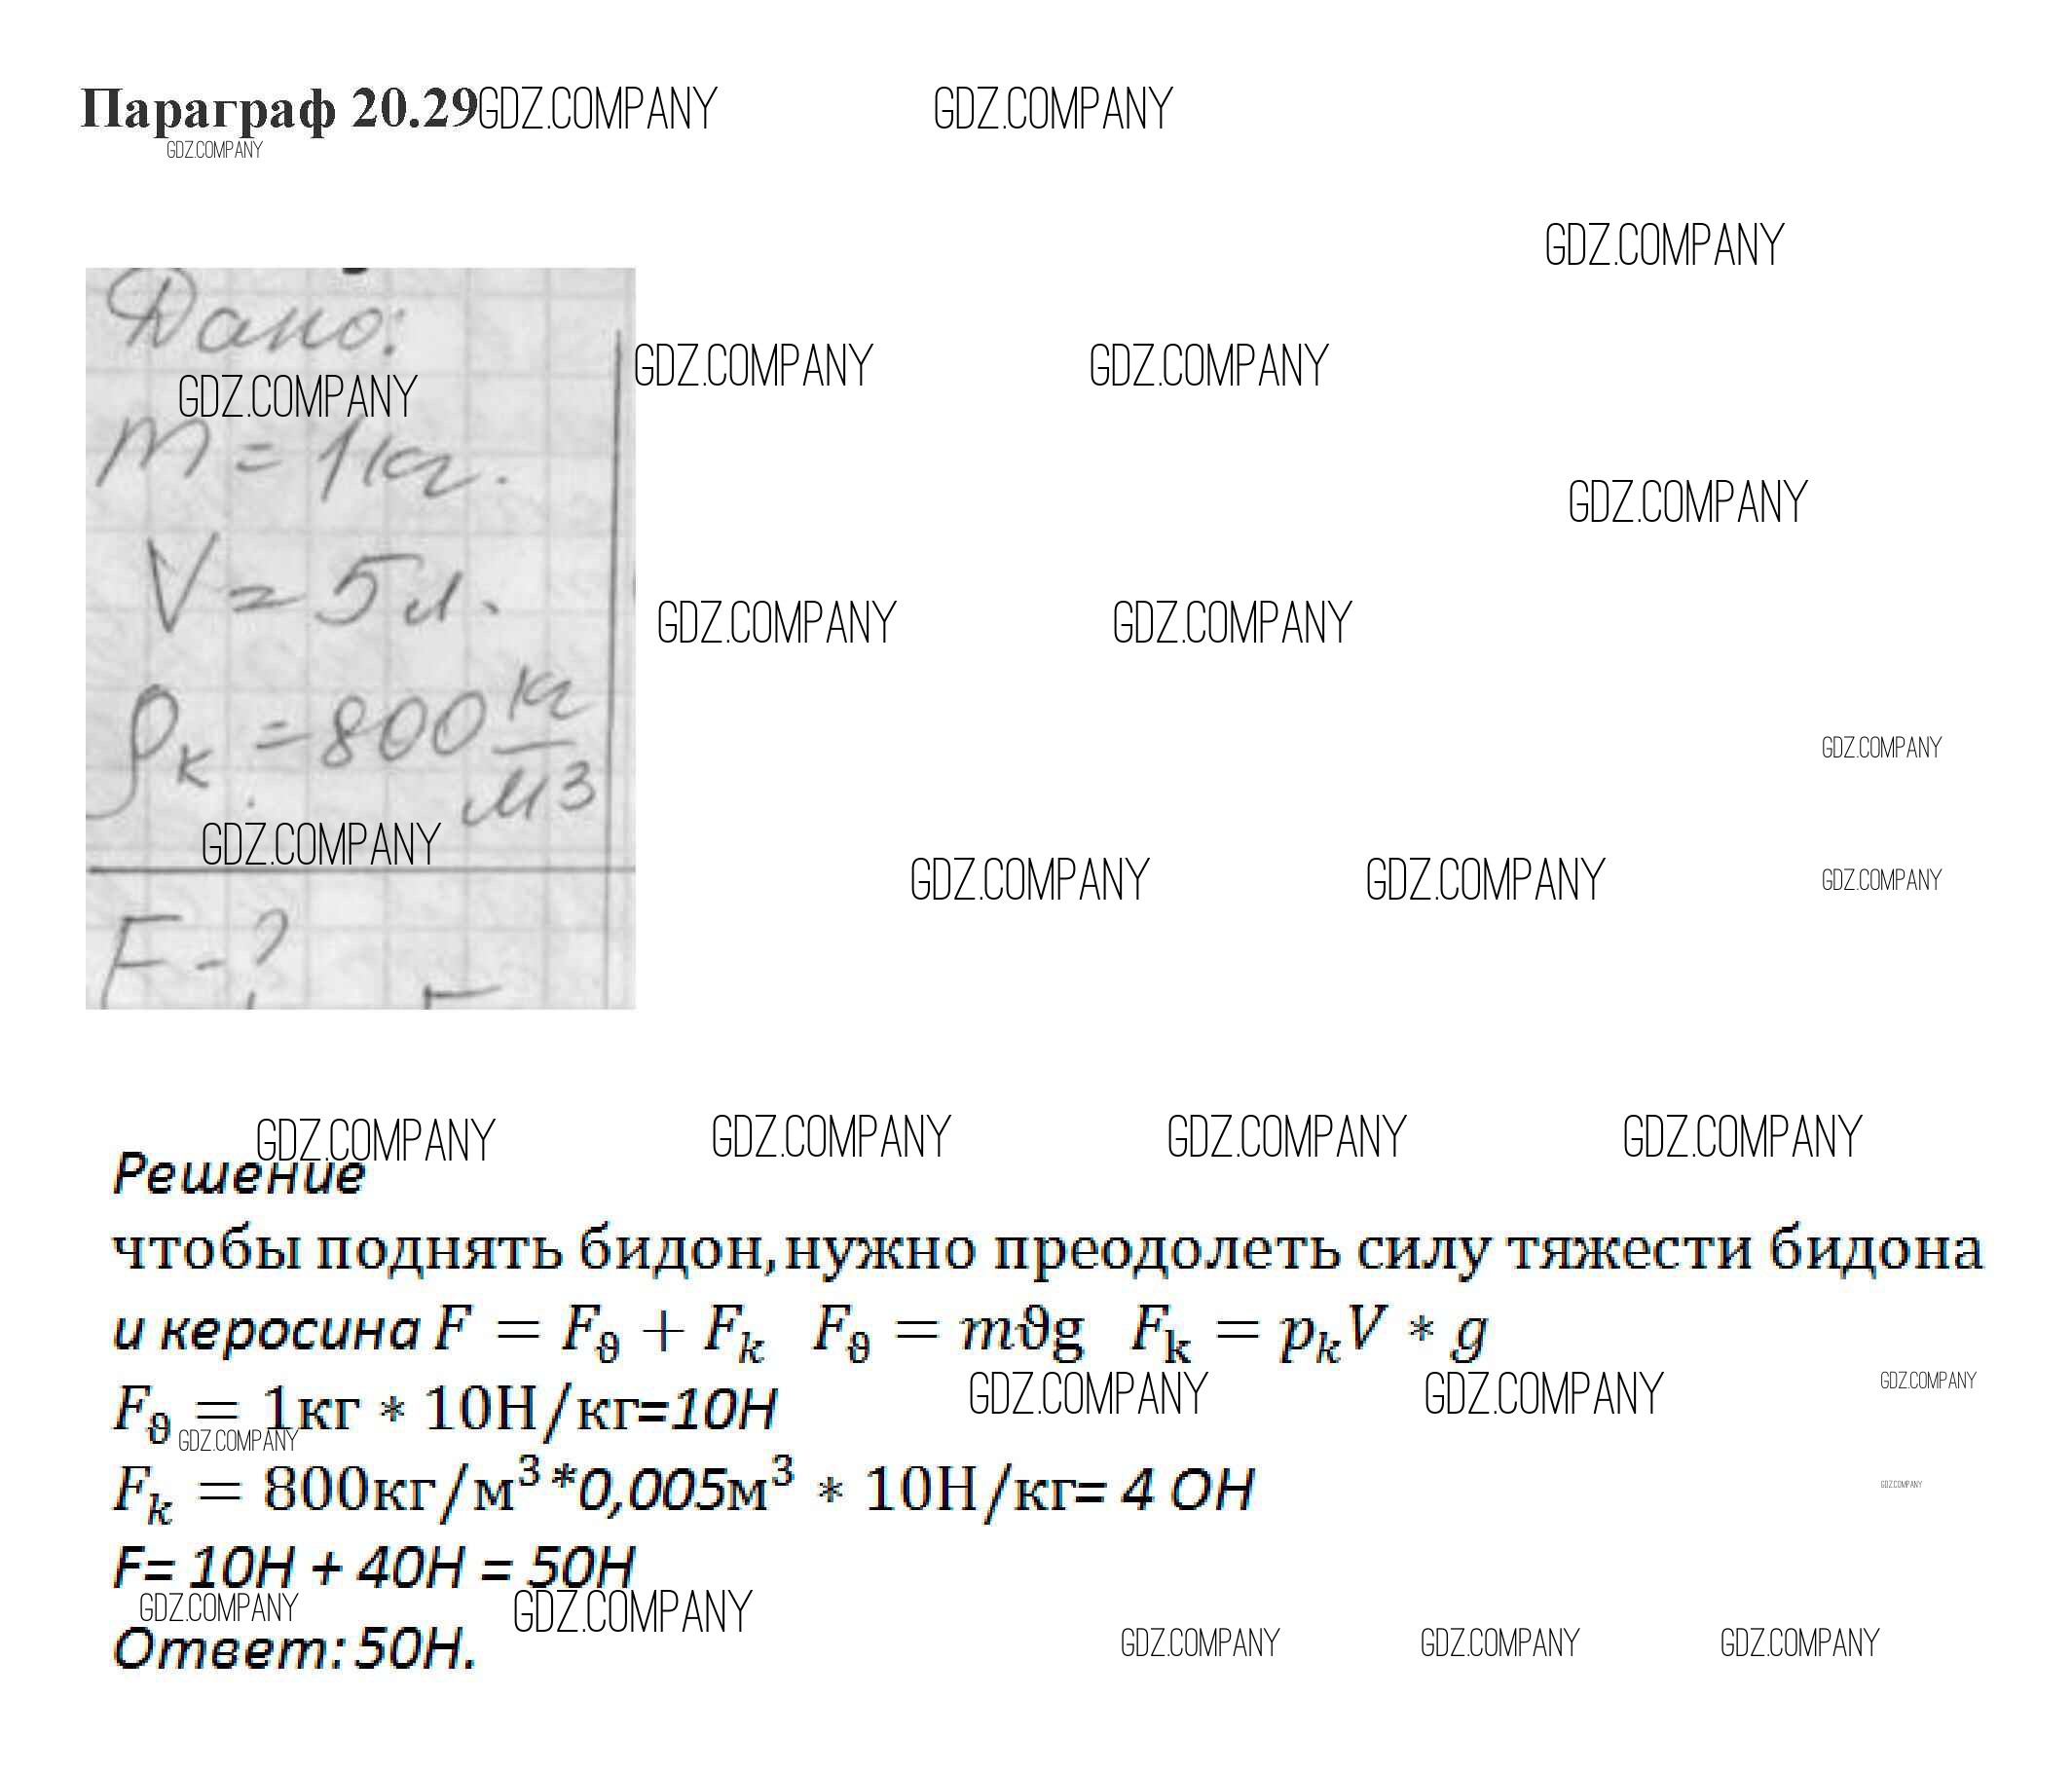 Параграф 20.29GDZ.COMPANY GDZ.COMPANY
GDZ.COMPANY
GDZ.COMPANY
Дано:
GDZ.COMPANY GDZ.COMPANY
GDZ.COMPANY
m = 1кг.
GDZ.COMPANY
V = 5л.
GDZ.COMPANY GDZ.COMPANY
ρк = 800 кг/м3
GDZ.COMPANY
GDZ.COMPANY
GDZ.COMPANY GDZ.COMPANY GDZ.COMPANY
F - ?
GDZ.COMPANY GDZ.COMPANY GDZ.COMPANY GDZ.COMPANY
Решение
чтобы поднять бидон, нужно преодолеть силу тяжести бидона
и керосина F = Fϑ + Fk Fϑ = mϑg Fk = pkV * g
GDZ.COMPANY GDZ.COMPANY GDZ.COMPANY
Fϑ = 1кг * 10Н/кг=10Н
GDZ.COMPANY
Fk = 800кг/м³*0,005м³ * 10Н/кг= 4 0Н
GDZ.COMPANY
F= 10Н + 40Н = 50Н
GDZ.COMPANY GDZ.COMPANY
Ответ: 50Н.
GDZ.COMPANY GDZ.COMPANY GDZ.COMPANY